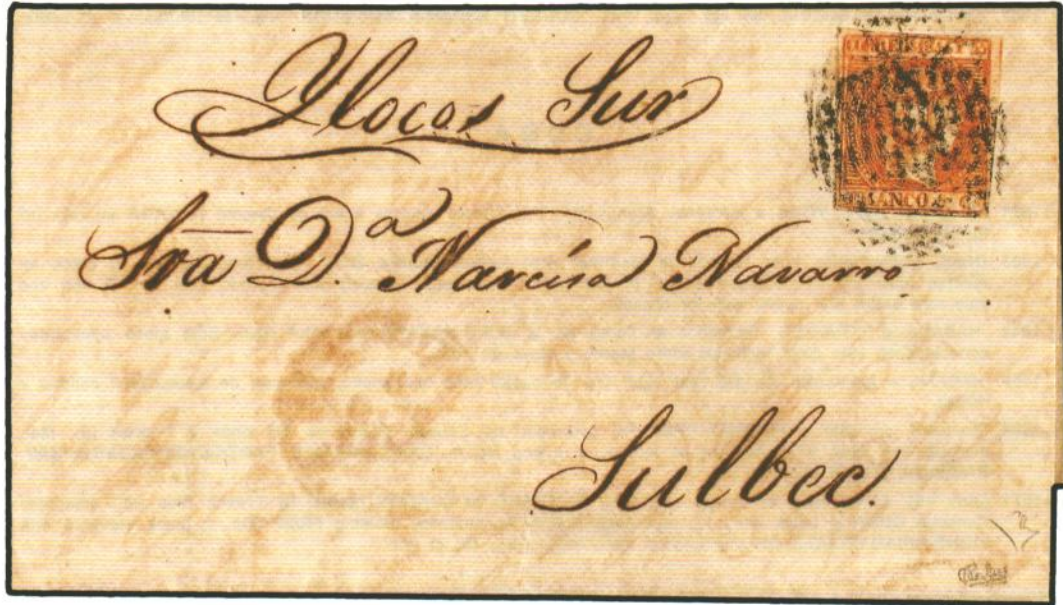 Ylocos Sur
Sra D.ª Narcisa Navarro
Sulbec.
FRANCO